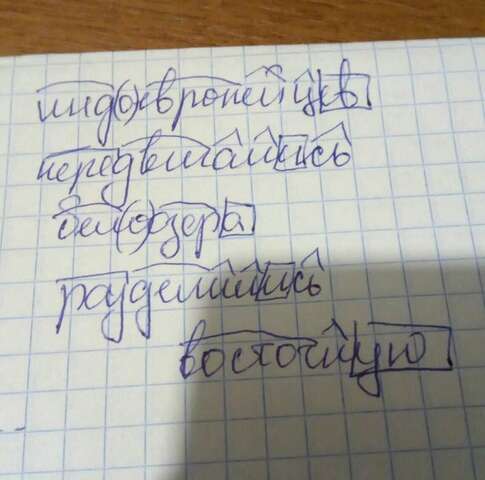 индоевропейцев
передвигались
бел(о)озера
разделились
восточную